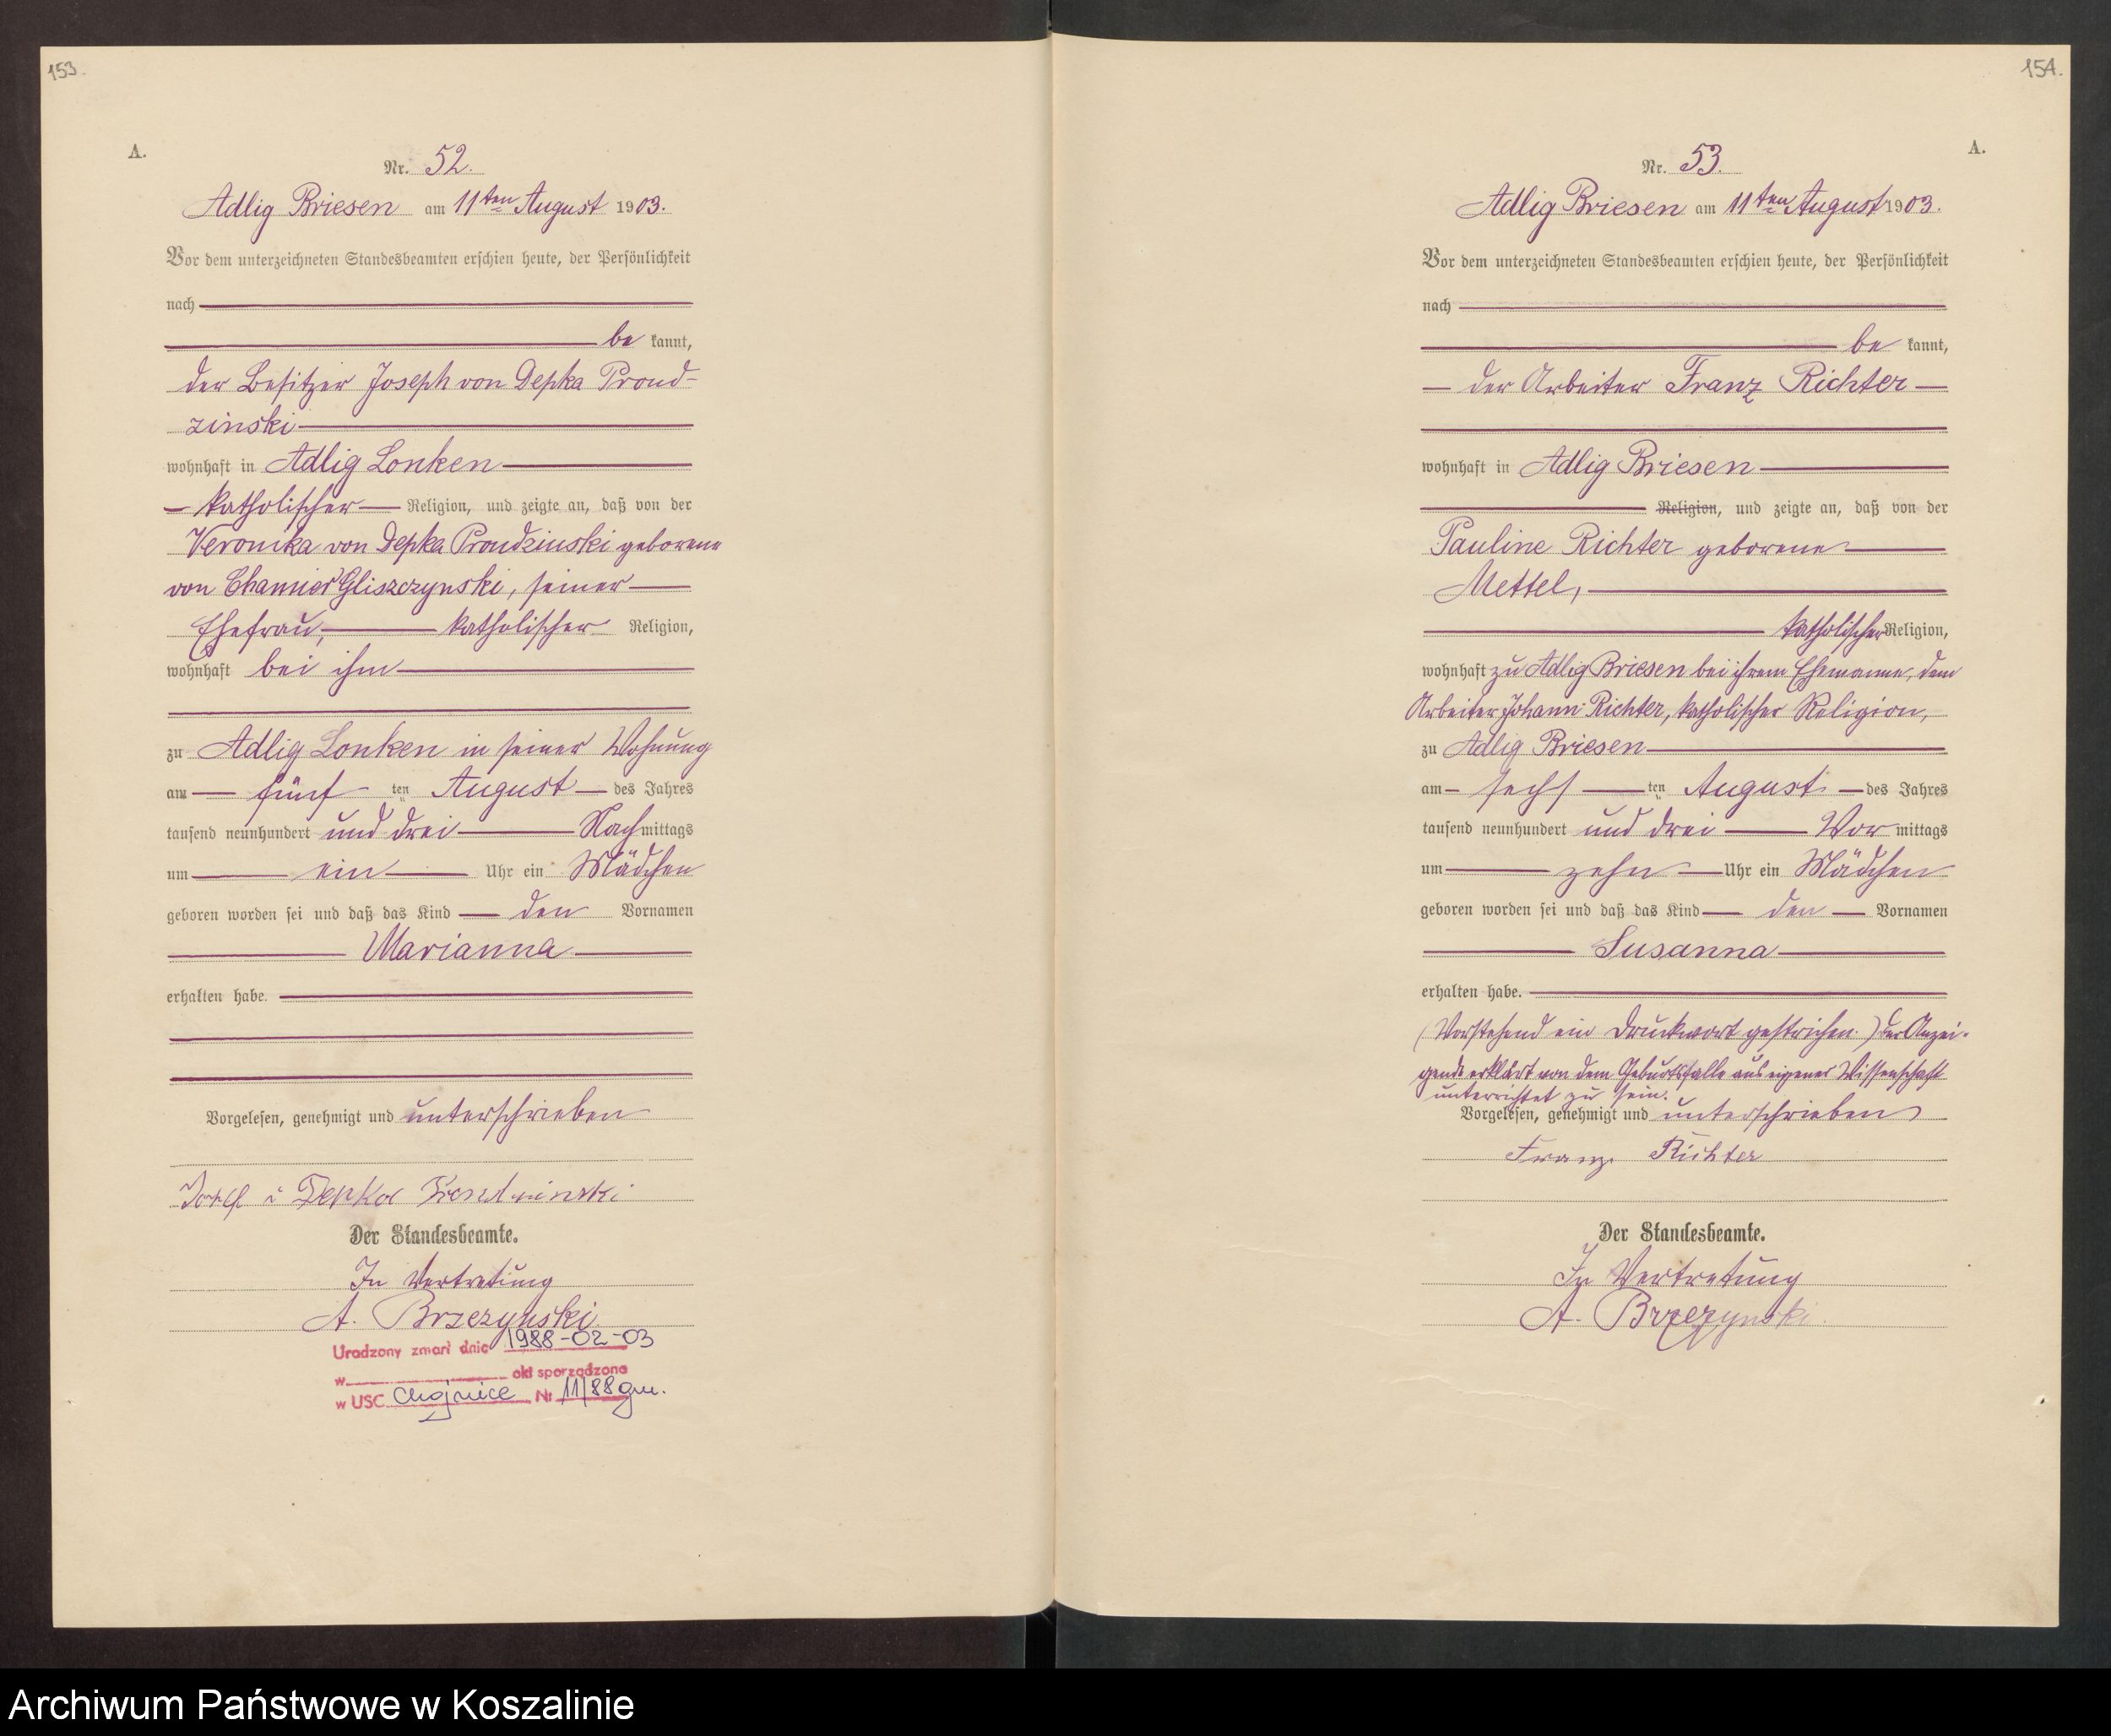 153.
A.
Nr. 52.
Adlig Briesen am 11ten August 1903.
Vor dem unterzeichneten Standesbeamten erschien heute, der Persönlichkeit
nach
be kannt,
der Besitzer Joseph von Depka Prond-
zinski
wohnhaft in Adlig Lonken
katholischer Religion, und zeigte an, daß von der
Veronika von Depka Prondzinski geborene
von Chamier Gliszczynski, seiner
Ehefrau, katholischer Religion,
wohnhaft bei ihm
zu Adlig Lonken in seiner Wohnung
am fünf ten August des Jahres
tausend neunhundert und drei Nachmittags
um ein Uhr ein Mädchen
geboren worden sei und daß das Kind den Vornamen
Marianna
erhalten habe.
Vorgelesen, genehmigt und unterschrieben
Depka
Der Standesbeamte.
In Vertretung
A. Brzezynski
Urodzony zmarł dnia 1988-02-03
w akt sporządzono
w USC Chojnice Nr 11/88 gm.
154.
A.
Nr. 53.
Adlig Briesen am 11ten August 1903.
Vor dem unterzeichneten Standesbeamten erschien heute, der Persönlichkeit
nach
be kannt,
der Arbeiter Franz Richter
wohnhaft in Adlig Briesen
Religion, und zeigte an, daß von der
Pauline Richter geborene
Mettel,
katholischer Religion,
wohnhaft zu Adlig Briesen bei ihrem Ehemanne, dem
Arbeiter Johann Richter, katholischer Religion,
zu Adlig Briesen
am sechs ten August des Jahres
tausend neunhundert und drei Vormittags
um zehn Uhr ein Mädchen
geboren worden sei und daß das Kind den Vornamen
Susanna
erhalten habe.
(Vorstehend ein Druckwort gestrichen.) Der Anzei-
gende erklärt von dem Geburtsfalle aus eigener Wissenschaft
unterrichtet zu sein.
Vorgelesen, genehmigt und unterschrieben
Franz Richter
Der Standesbeamte.
In Vertretung
A. Brzezynski.
Archiwum Państwowe w Koszalinie